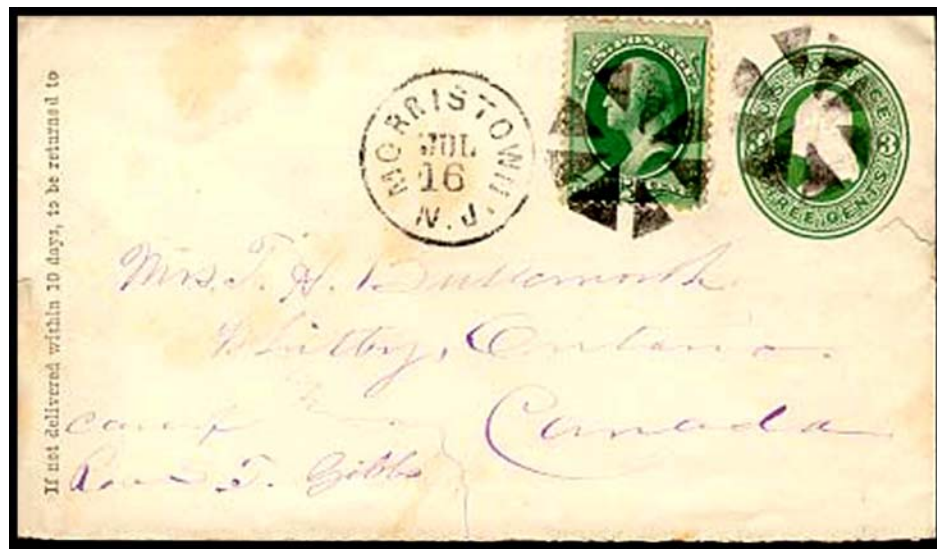 If not delivered within 10 days, to be returned to
MORRISTOWN,
JUL
16
N.J.
U.S. POSTAGE
U.S. POSTAGE
3 3
THREE CENTS
Mrs. T. H. Butterworth
Whitby, Ontario
Canada
care of
Rev. S. T. Gibbs